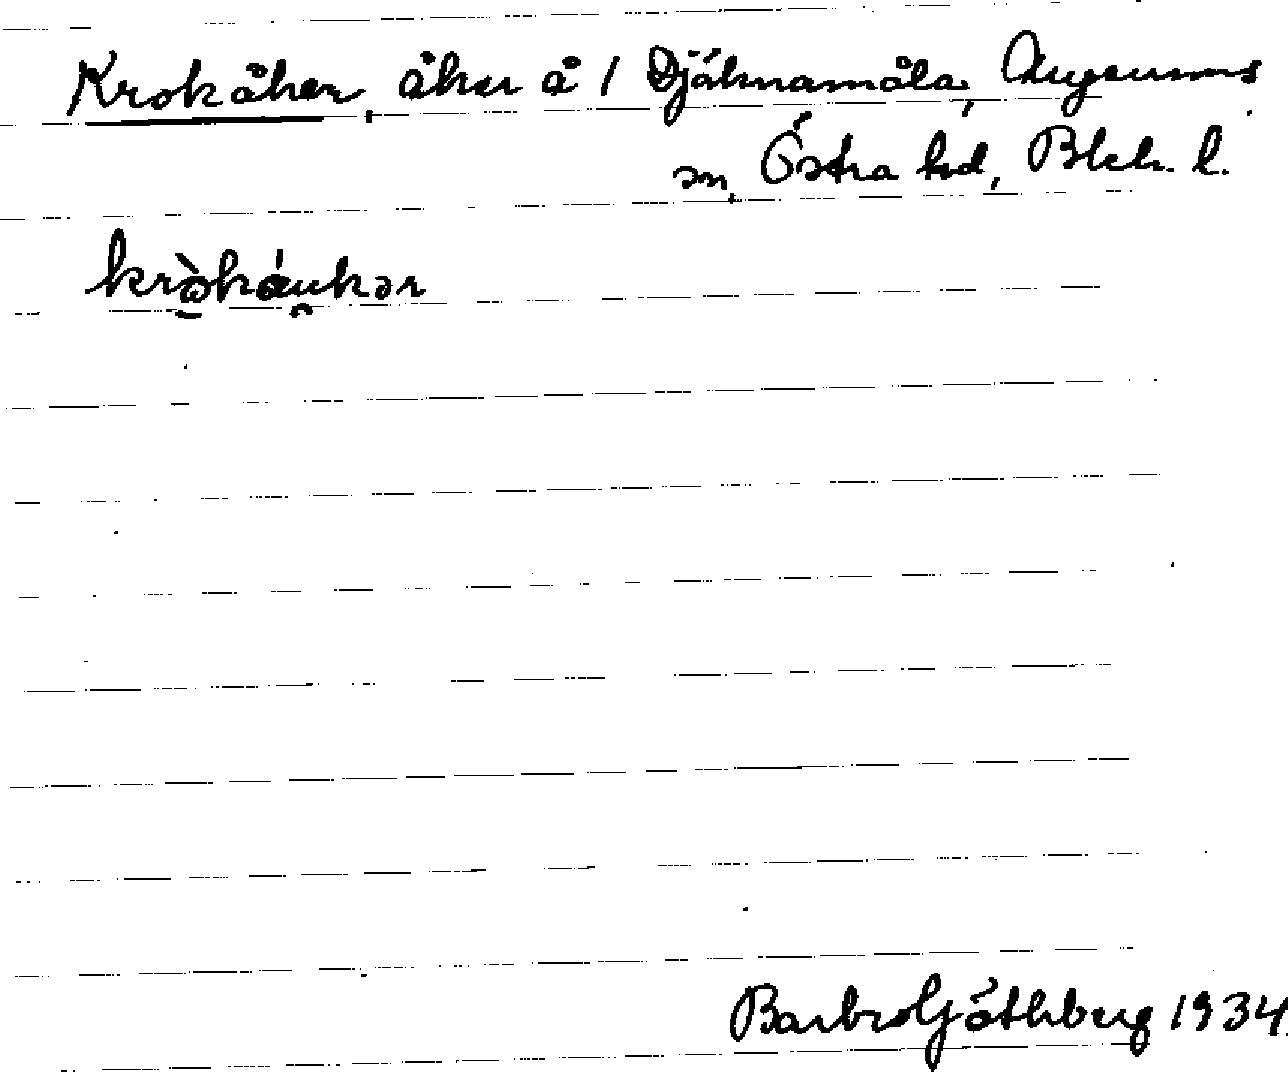 Krokåker, åker å 1 Djäknamåla, Augerums
sn, Östra hd, Blek. l.
kròkáukər
Barbro Göthberg 1934